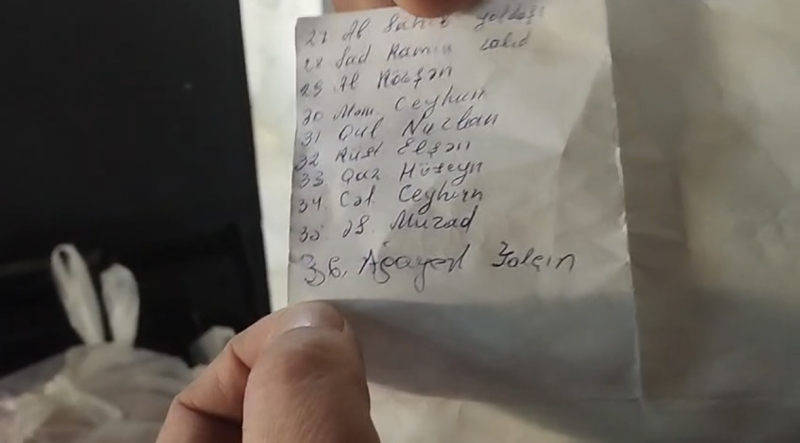 27 Al Sahib yoldaşı
28 Sad Ramin zahid
29 Al Rövşən
30 Məm. Ceyhun
31 Qul Nurlan
32 Rüst Elşən
33 Qaz Hüseyn
34. Cəl. Ceyhun
35. İS. Murad
36. Ağayev Yalçın